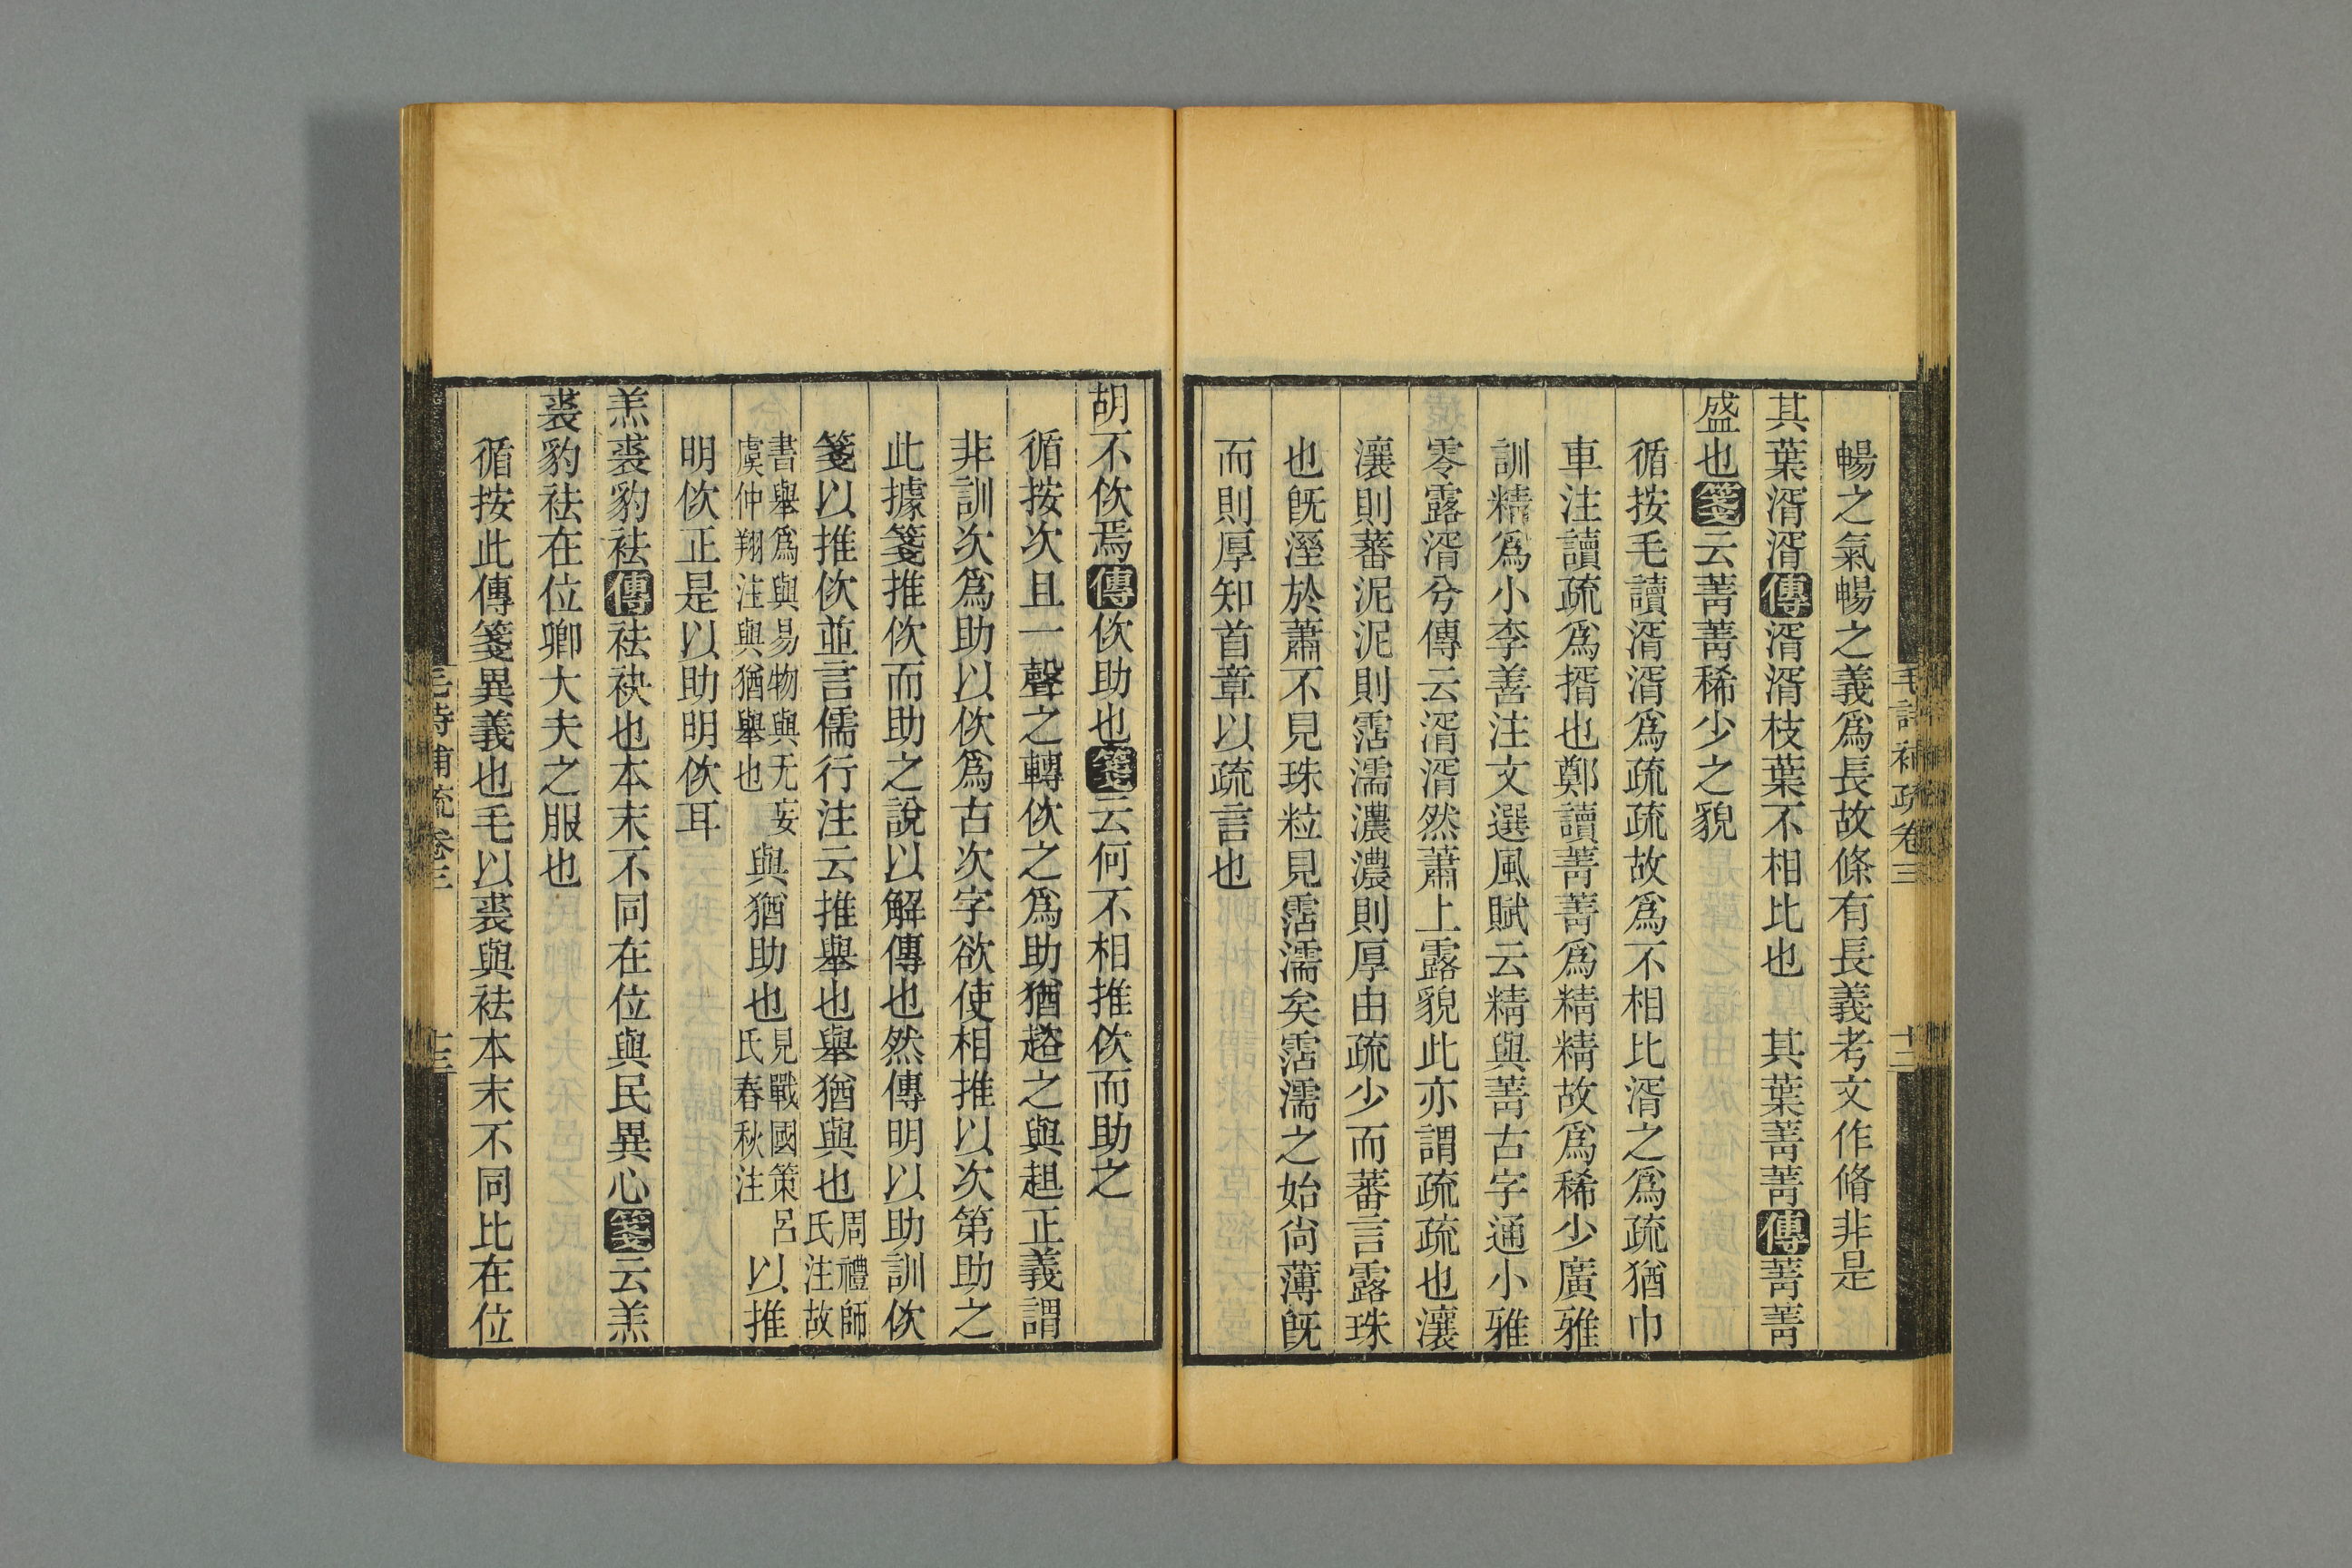 暢之氣暢之義爲長故條有長義考文作脩非是
其葉湑湑傳湑湑枝葉不相比也　其葉菁菁傳菁菁
盛也箋云菁菁稀少之貌
循按毛讀湑湑爲疏疏故爲不相比湑之爲疏猶巾
車注讀疏爲揟也鄭讀菁菁爲精精故爲稀少廣雅
訓精爲小李善注文選風賦云精與菁古字通小雅
零露湑兮傳云湑湑然蕭上露貌此亦謂疏疏也瀼
瀼則蕃泥泥則霑濡濃濃則厚由疏少而蕃言露珠
也旣溼於蕭不見珠粒見霑濡矣霑濡之始尙薄旣
而則厚知首章以疏言也
毛詩補疏卷三
十二
胡不佽焉傳佽助也箋云何不相推佽而助之
循按次且一聲之轉佽之爲助猶趦之與趄正義謂
非訓次爲助以佽爲古次字欲使相推以次第助之
此據箋推佽而助之說以解傳也然傳明以助訓佽
箋以推佽並言儒行注云推舉也舉猶與也周禮師氏注故
書舉爲與易物與无妄虞仲翔注與猶舉也與猶助也見戰國策呂氏春秋注以推
明佽正是以助明佽耳
羔裘豹袪傳袪袂也本末不同在位與民異心箋云羔
裘豹袪在位卿大夫之服也
循按此傳箋異義也毛以裘與袪本末不同比在位
毛詩補疏卷三
十三